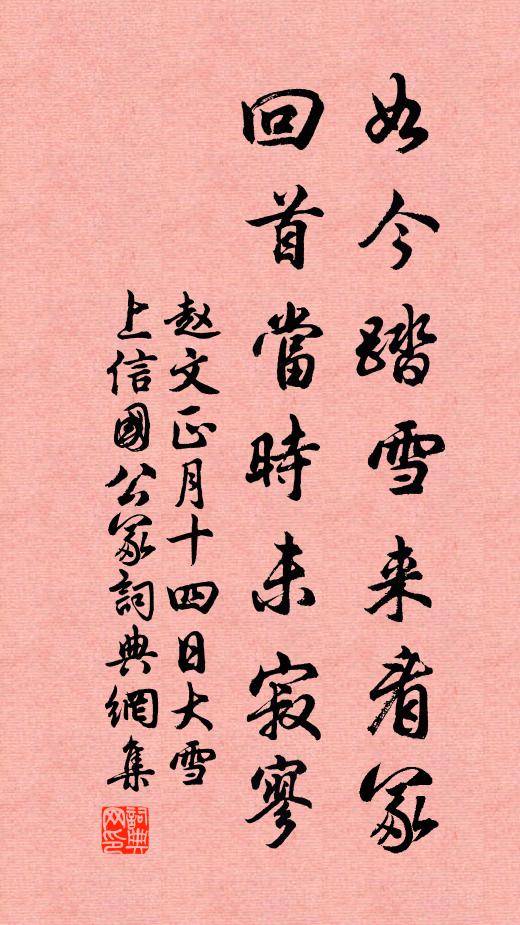 如今踏雪来看冢
回首當時未寂寥
赵文正月十四日大雪
上信國公冢詞典網集
詞典网印